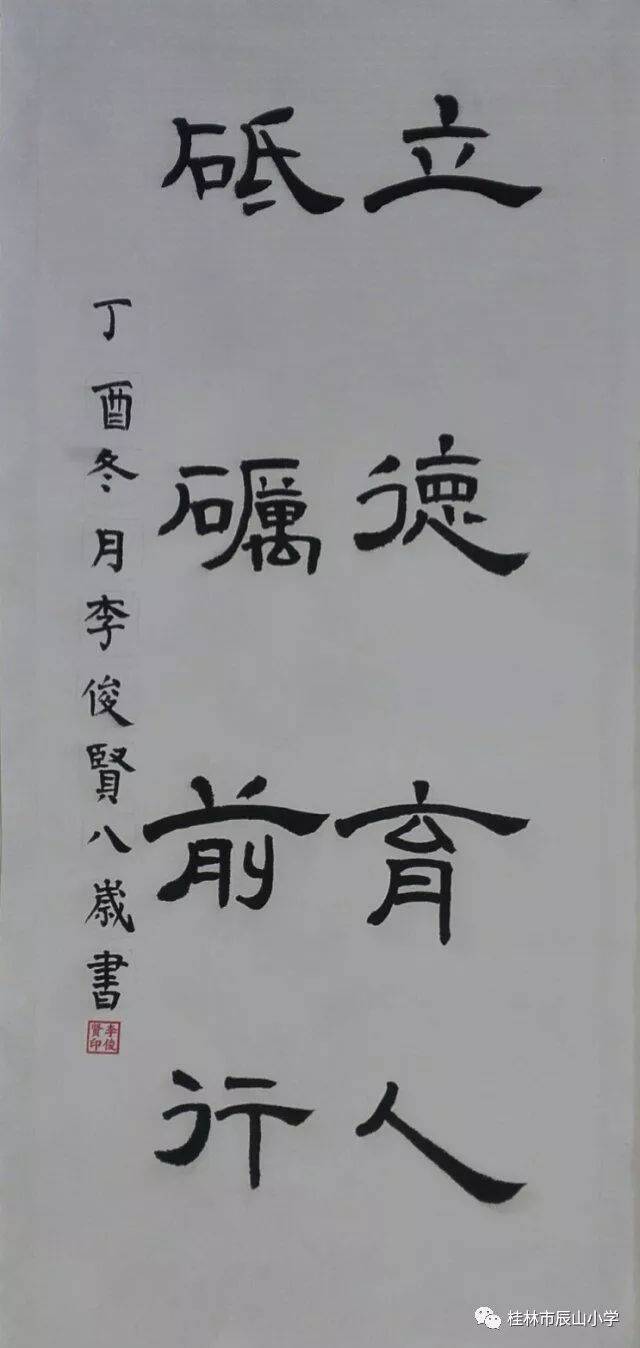 立德育人
砥礪前行
丁酉冬月李俊賢八歲書
李俊
賢印
桂林市辰山小学